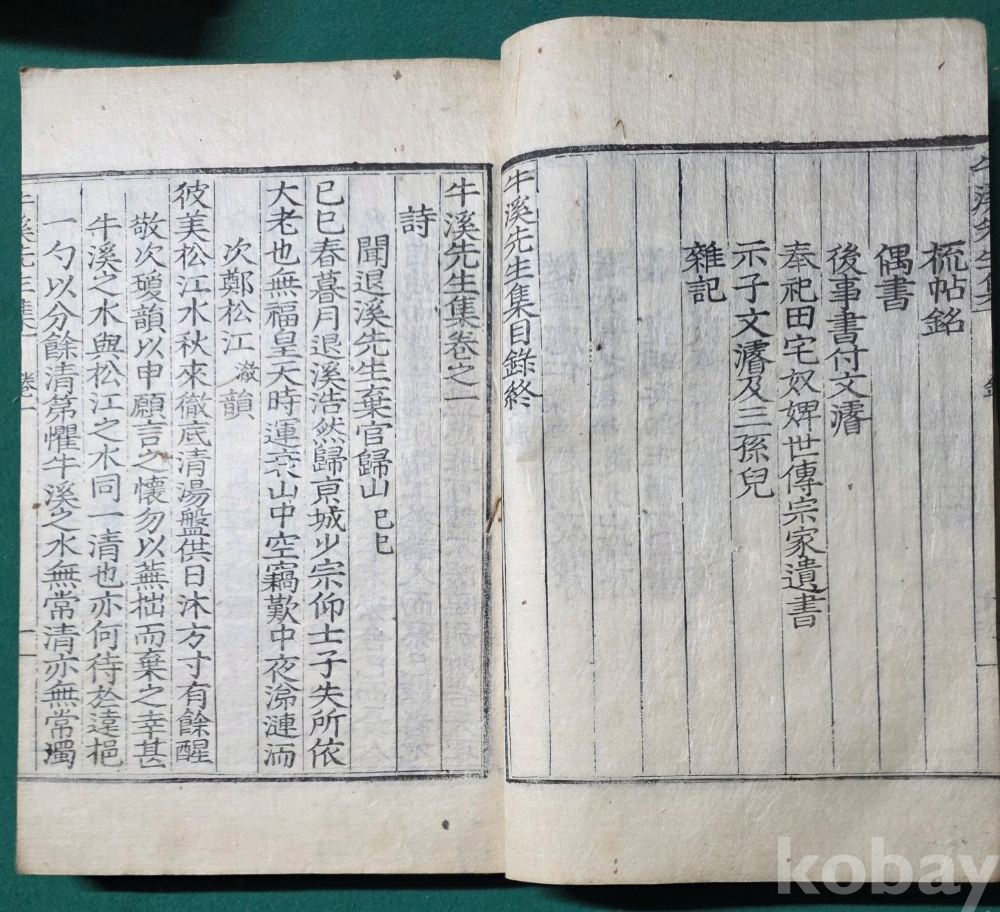 梳帖銘
偶書
後事書付文濬
奉祀田宅奴婢世傳宗家遺書
示子文濬及三孫兒
雜記
牛溪先生集目錄終
牛溪先生集卷之一
詩
聞退溪先生棄官歸山 己巳
己巳春暮月退溪浩然歸京城少宗仰士子失所依
大老也無福皇天時運衰山中空竊歎中夜涕漣洏
次鄭松江 澈 韻
彼美松江水秋來徹底清湯盤供日沐方寸有餘醒
敬次瓊韻以申願言之懷勿以蕪拙而棄之幸甚
牛溪之水與松江之水同一清也亦何待於遠挹
一勺以分餘清第懼牛溪之水無常清亦無常濁
kobay